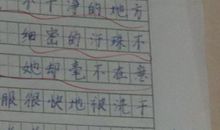 不干净的地方
细密的汗珠不
她却毫不在意
服很快地被洗干